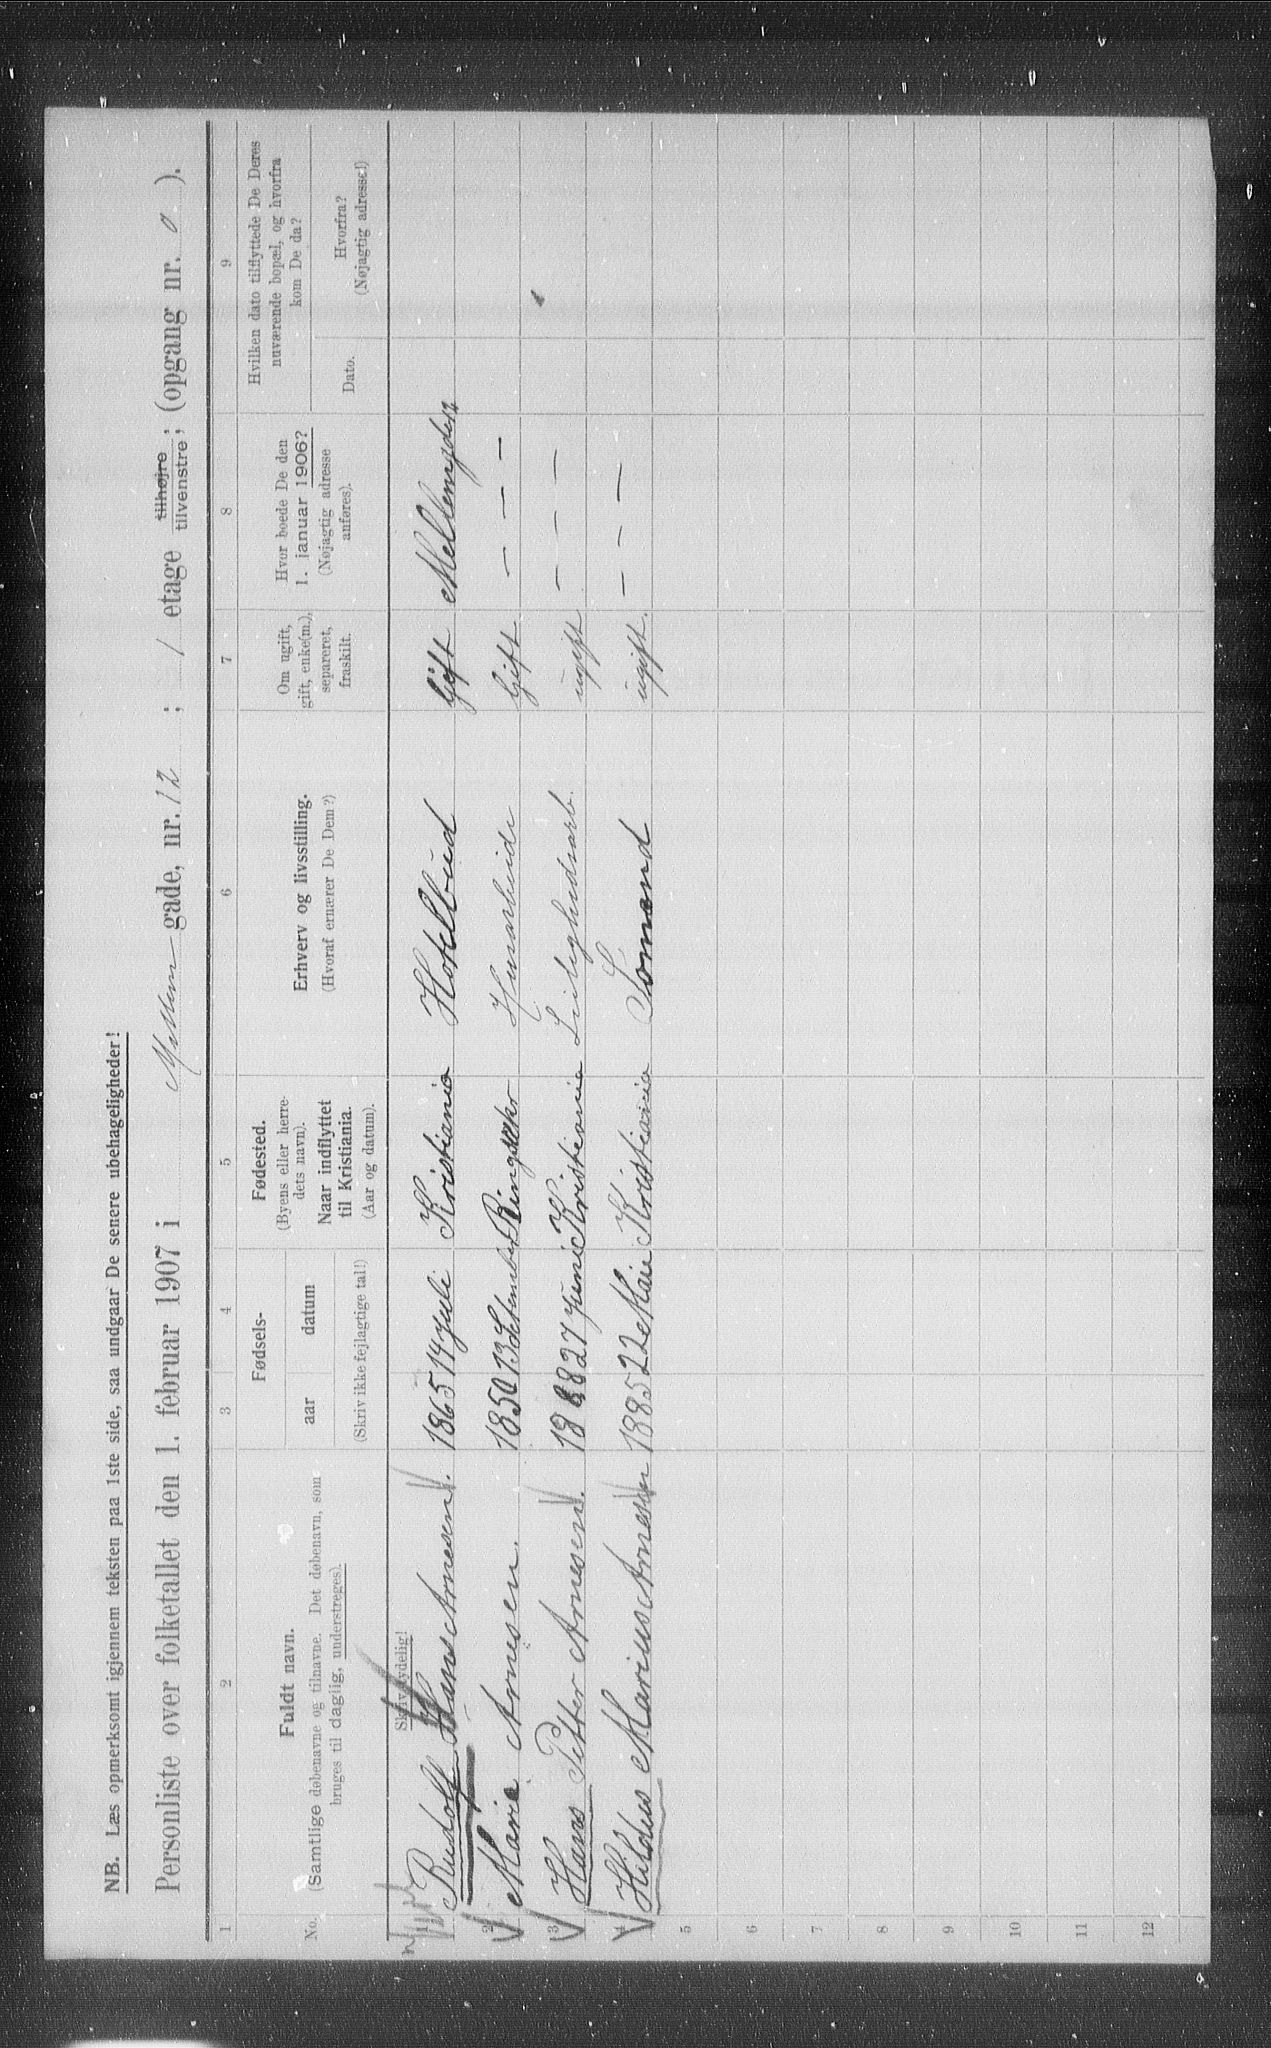 NB. Læs opmerksomt igjennem teksten paa 1ste side, saa undgaar De senere ubehageligheder!
Personliste over folketallet den 1. februar 1907 i Mellem gade, nr. 12 ; 1 etage tilhøjre tilvenstre ; (opgang nr. 0 ).
1 2 3 4 5 6 7 8 9
No. Fuldt navn. (Samtlige døbenavne og tilnavne. Det døbenavn, som bruges til daglig, understreges). Skriv tydelig!
Fødsels- aar datum (Skriv ikke fejlagtige tal!)
Fødested. (Byens eller herredets navn). Naar indflyttet til Kristiania. (Aar og datum).
Erhverv og livsstilling. (Hvoraf ernærer De Dem?)
Om ugift, gift, enke(m.), separeret, fraskilt.
Hvor boede De den 1. januar 1906? (Nøjagtig adresse anføres).
Hvilken dato tilflyttede De Deres nuværende bopæl, og hvorfra kom De da? Dato. Hvorfra? (Nøjagtig adresse!)
1 Rudolf Hans Arnesen. 1865 14 Juli Kristiania Hotelbud Gift Mellemgden 12
2 Marie Arnesen. 1850 13 Setember Ringsaker Husarbeide Gift. — — —
3 Hans Petter Arnesen. 1882 7 Juni Kristiania Leilighedsarb. ugift — — —
4 Hildus Marius Arnesen 1885 22 Mai Kristiania Sømand ugift. — — —
5
6
7
8
9
10
11
12